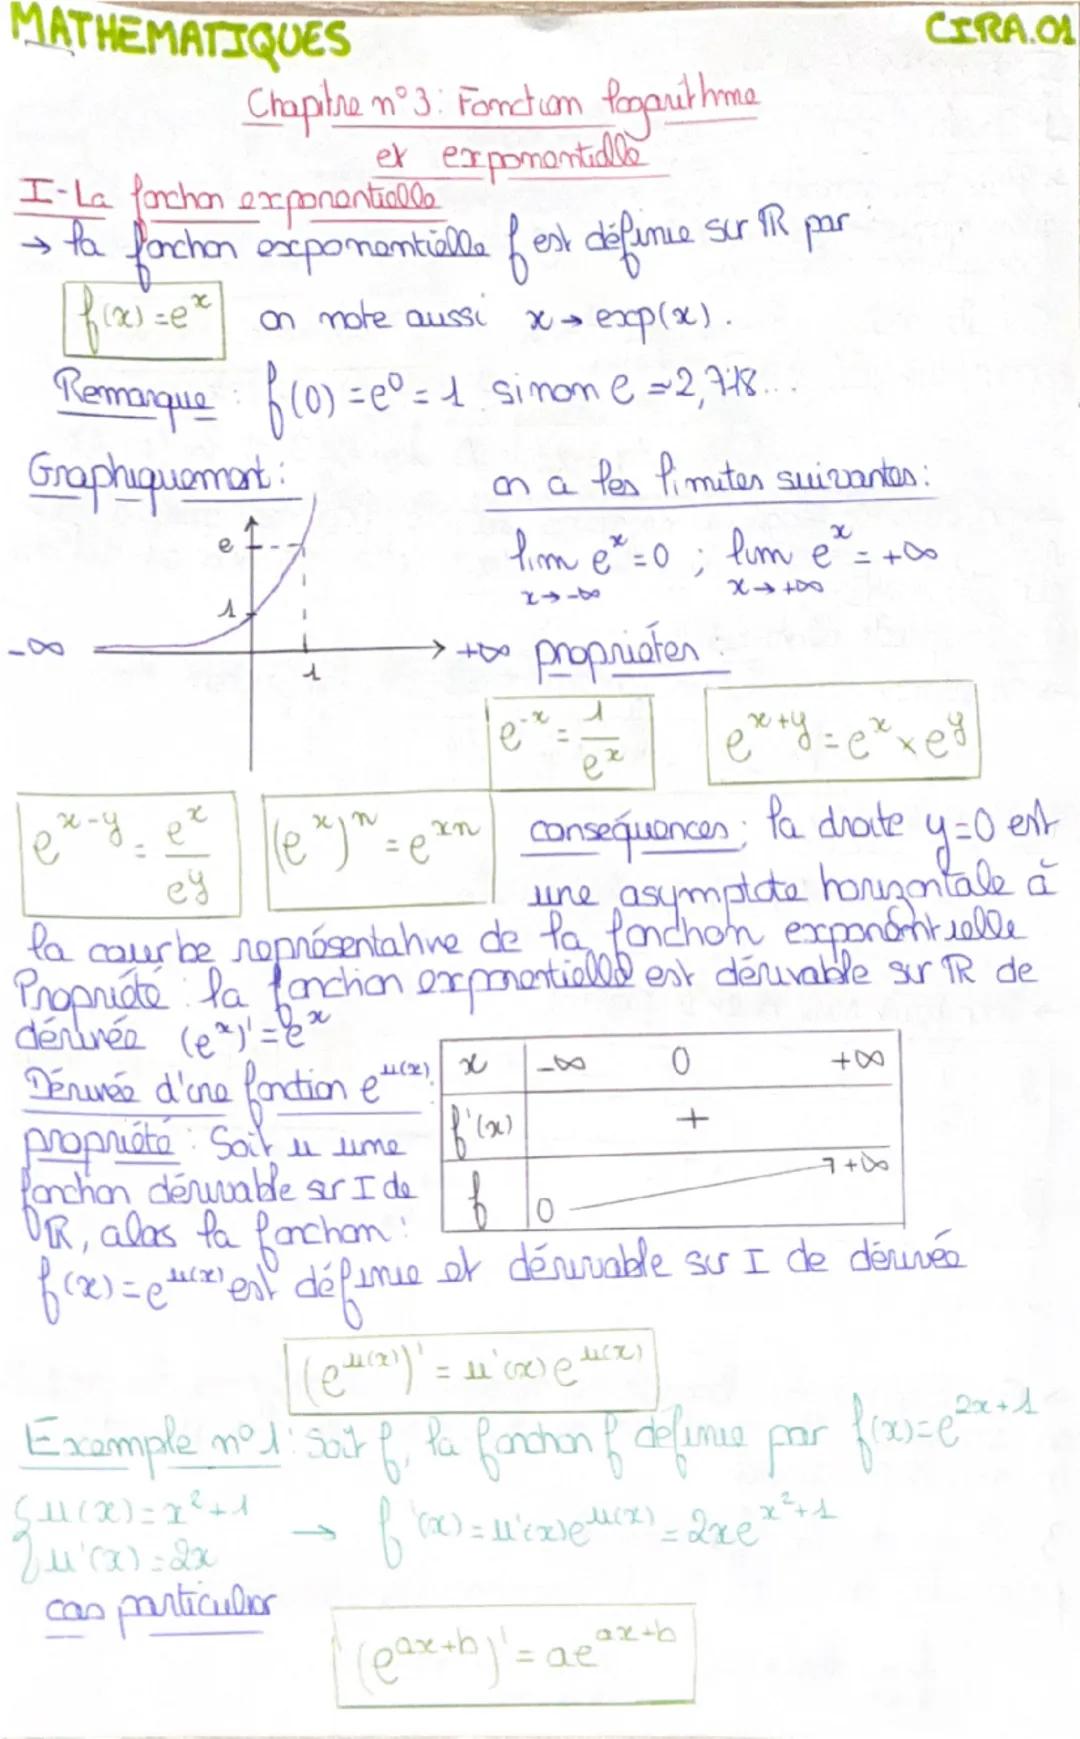 MATHEMATIQUES
CIRA.01
Chapitre n°3: Fonction logarithme
et exponentielle
I-La fonction exponentielle
→ la fonction exponentielle f est définie sur ℝ par :
f(x)=eˣ on note aussi x → exp(x).
Remarque : f(0) = e⁰ = 1 sinon e ≃2,718...
Graphiquement :
on a les limites suivantes :
lim eˣ=0 ; lim eˣ = +∞
x→-∞ x→+∞
e
1
-∞
+∞
1
propriétés :
e⁻ˣ = 1/eˣ
eˣ⁺ʸ = eˣ × eʸ
eˣ⁻ʸ = eˣ/eʸ
(eˣ)ⁿ = eˣⁿ
conséquences : la droite y=0 est
une asymptote horizontale à
la courbe représentative de la fonction exponentielle
Propriété : la fonction exponentielle est dérivable sur ℝ de
dérivée (eˣ)' = eˣ
Dérivée d'une fonction e^u(x)
propriété : Soit u une
fonction dérivable sur I de
ℝ, alors la fonction :
x -∞ 0 +∞
f'(x) +
f 0 +∞
f(x)=e^u(x) est définie et dérivable sur I de dérivée
(e^u(x))' = u'(x)e^u(x)
Exemple n°1: Soit f, la fonction f définie par f(x)=e^2x+1
{u(x)=x²+1
{u'(x)=2x
→ f'(x)=u'(x)e^u(x) = 2xe^x²+1
cas particulier
(e^ax+b)' = ae^ax+b